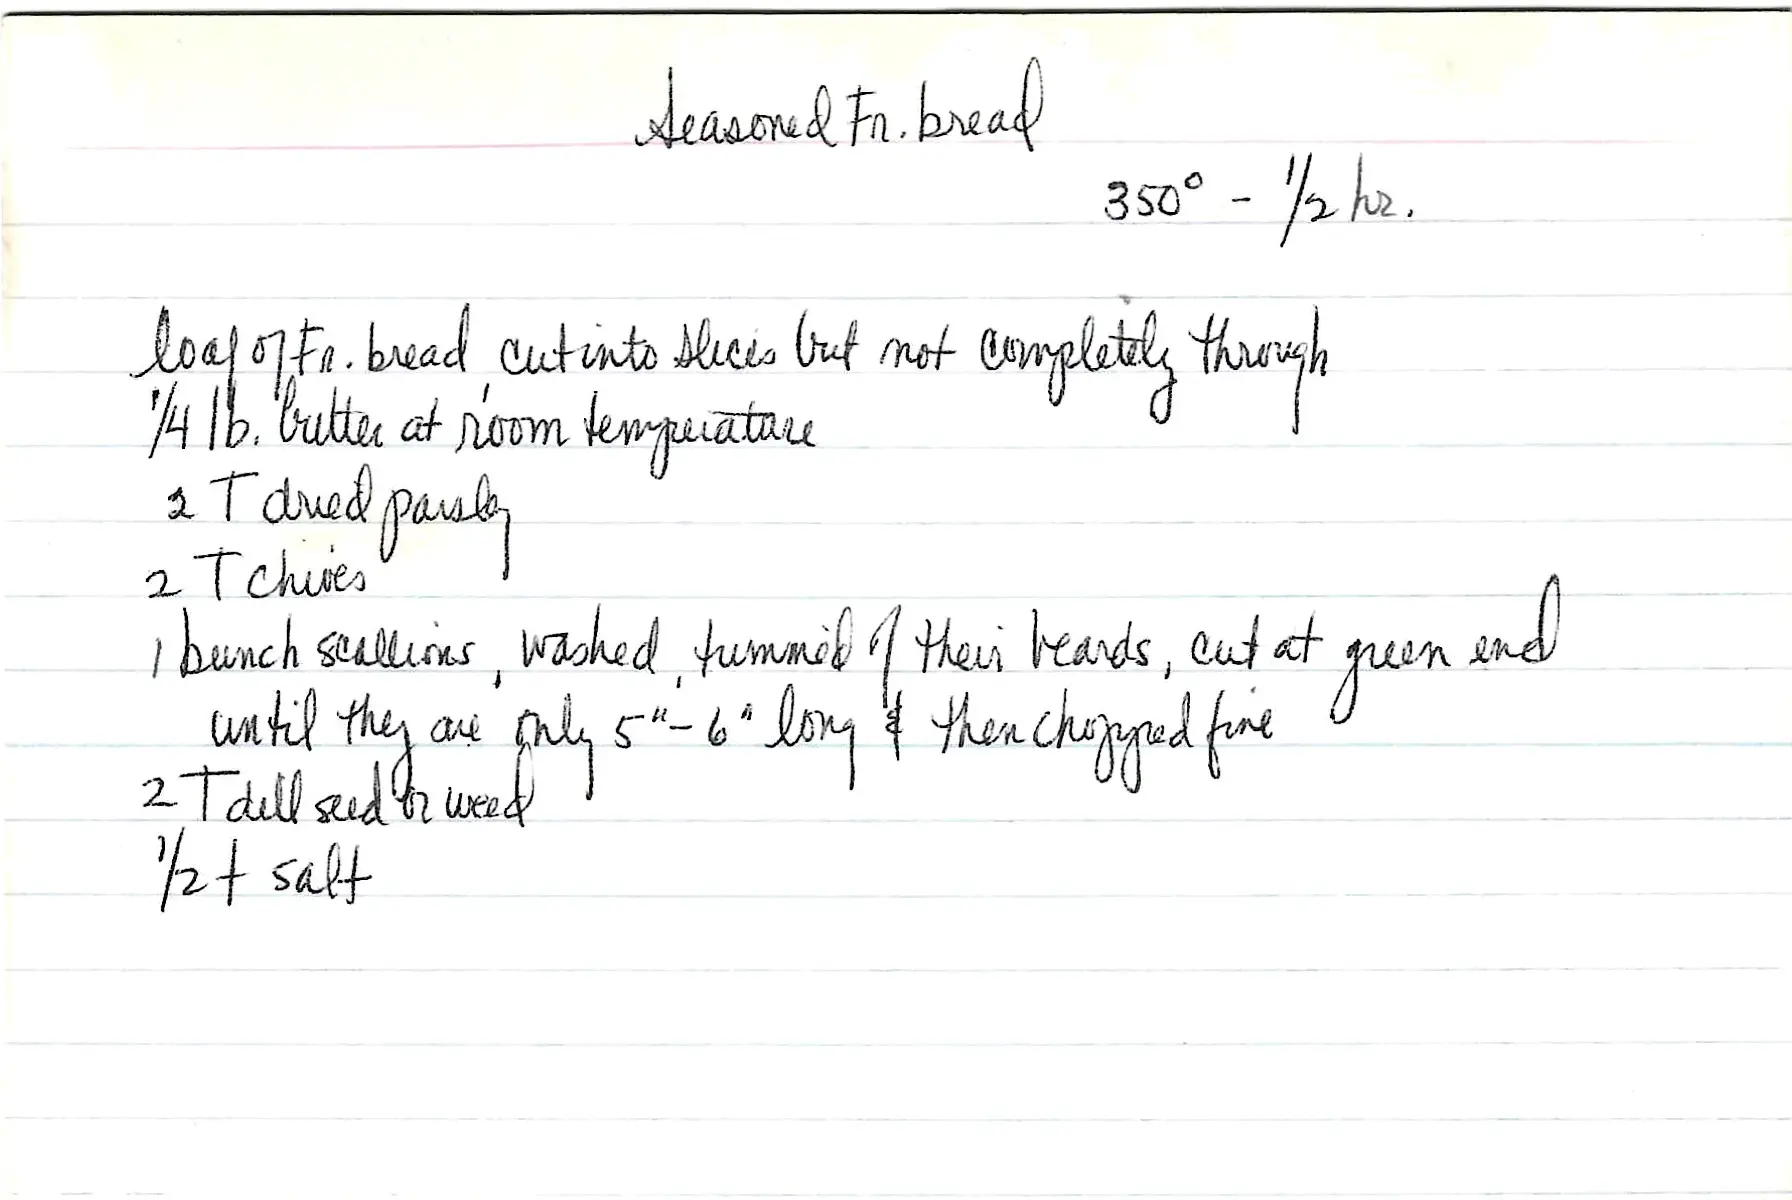 Seasoned Fr. bread
350° - 1/2 hr.
loaf of Fr. bread, cut into slices but not completely through
1/4 lb. butter at room temperature
2 T dried parsley
2 T chives
1 bunch scallions, washed, trimmed of their beards, cut at green end
until they are only 5"-6" long & then chopped fine
2 T dill seed or weed
1/2 t salt